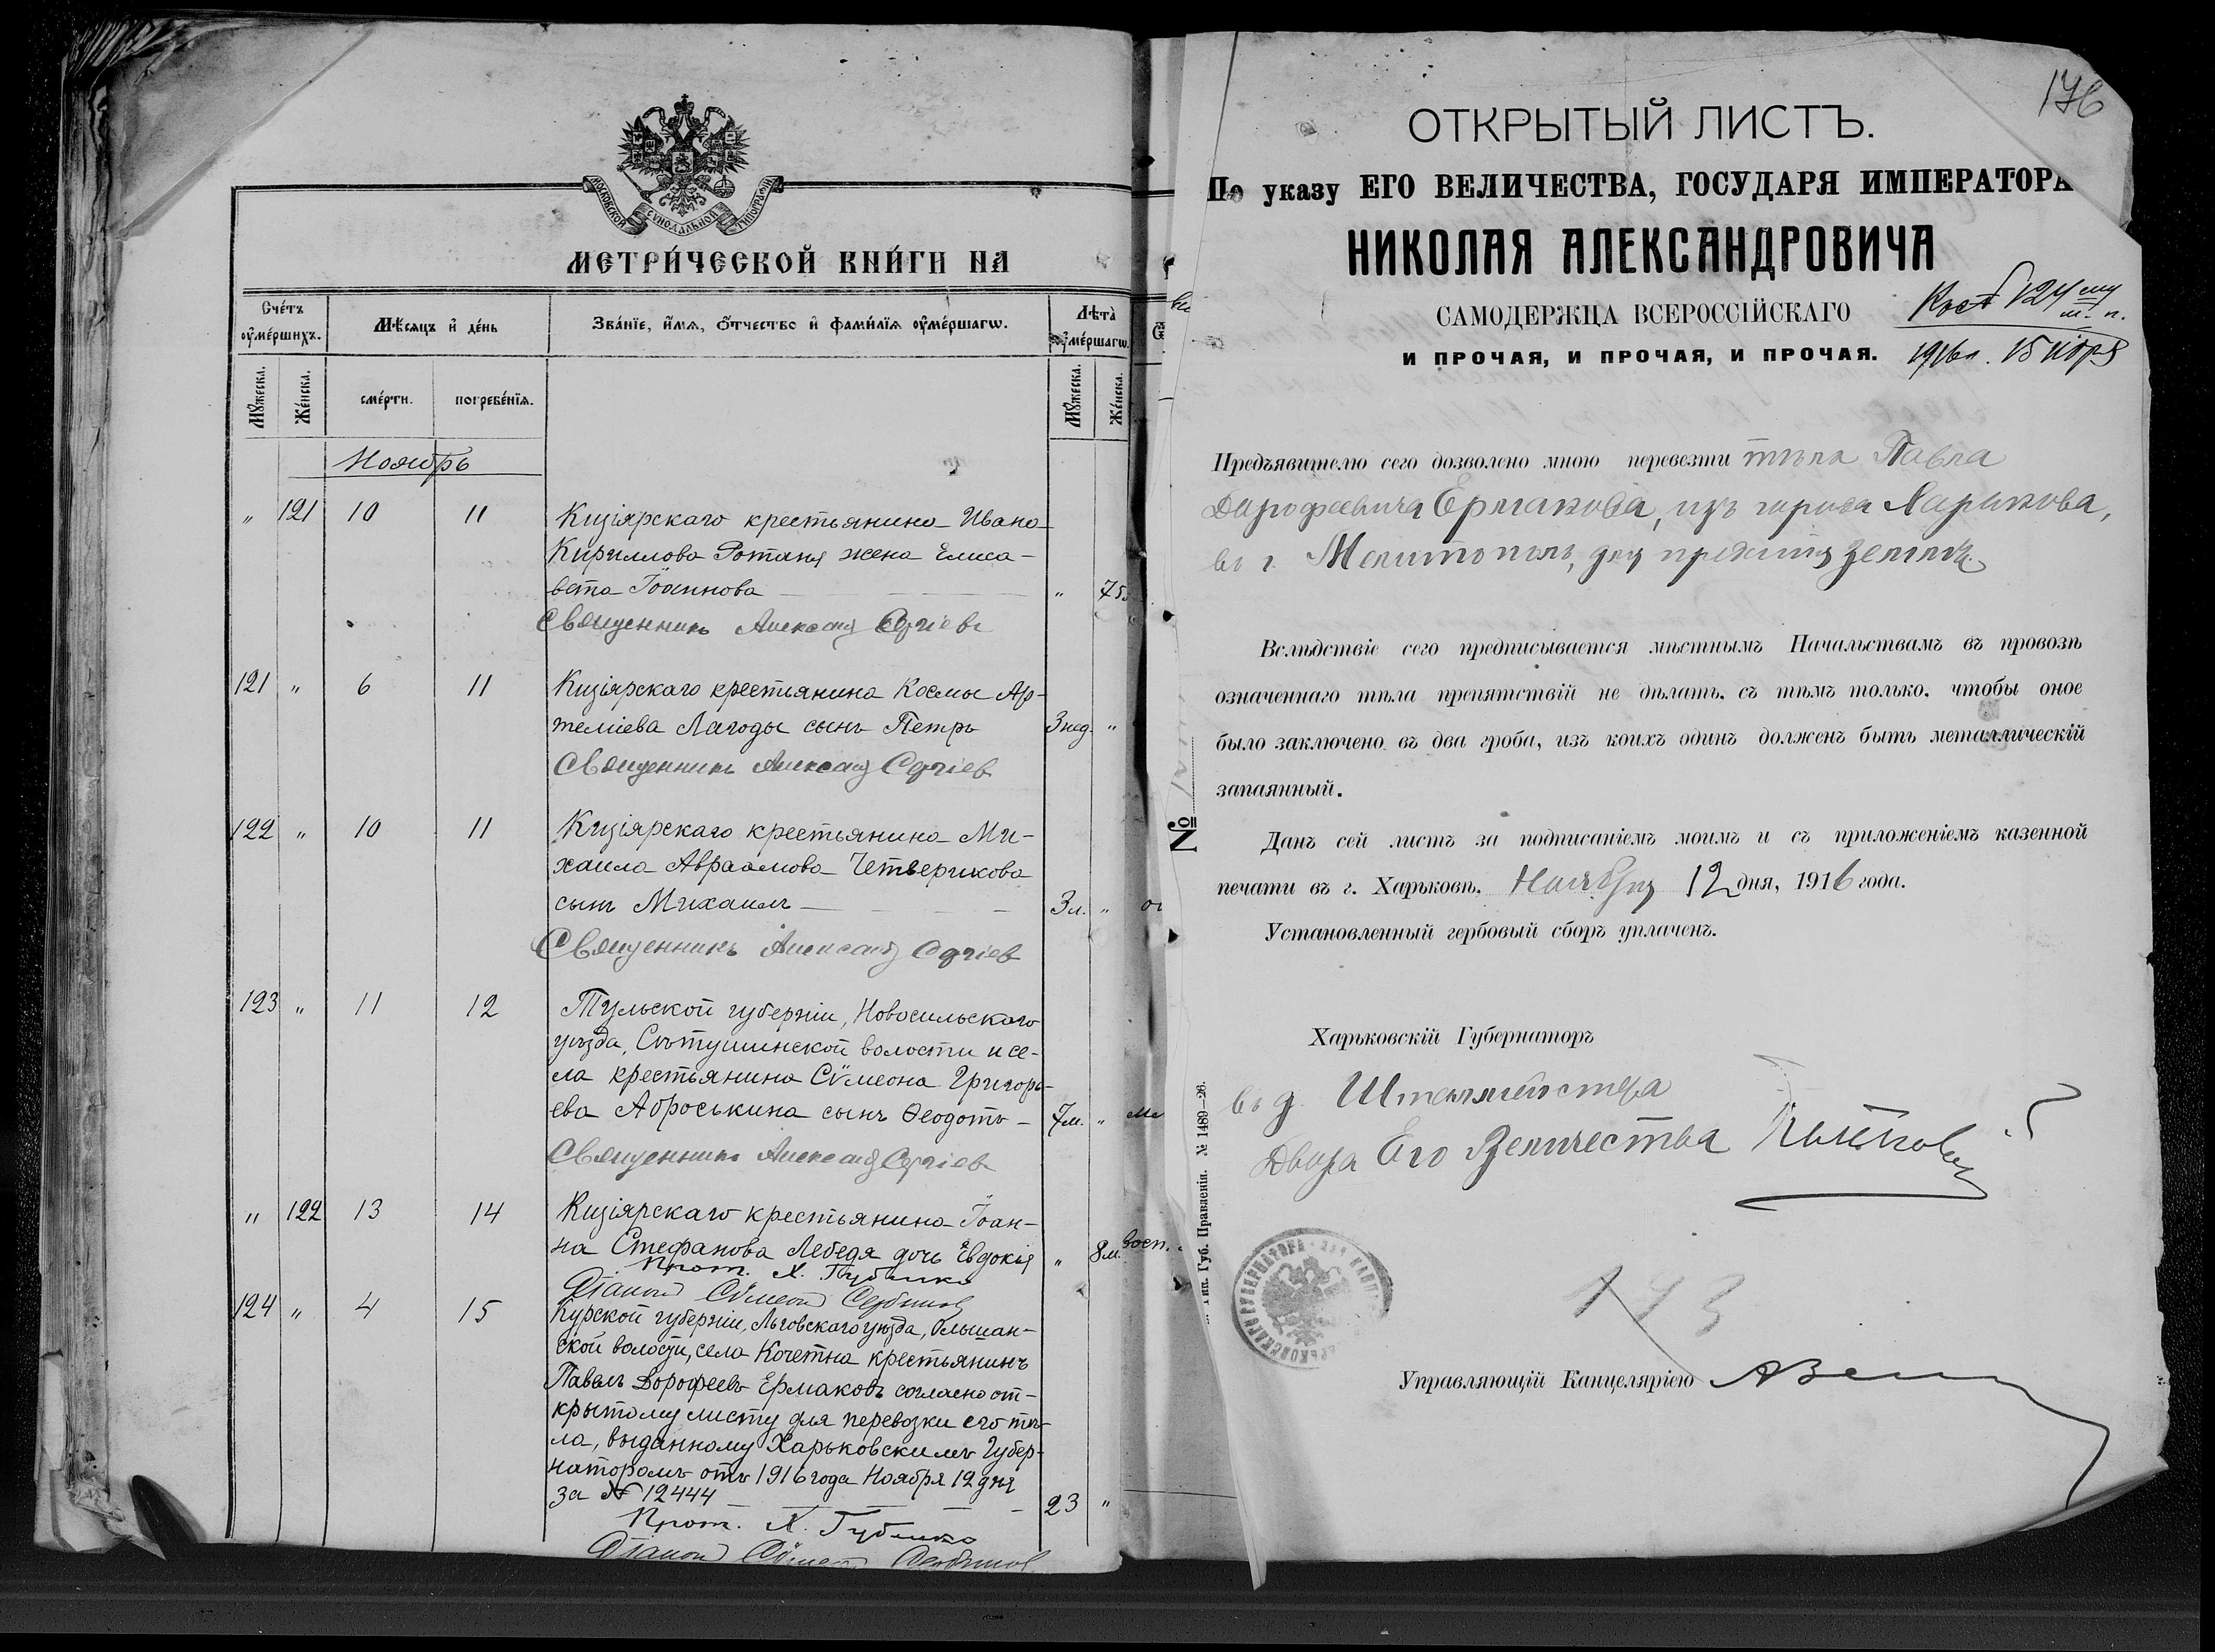 МОСКОВСКОЙ СѴНОДАЛЬНОЙ ТИПОГРАФІИ
МЕТРИ́ЧЕСКОЙ КНИ́ГИ НА
Сче́тъ ᲂу҆ме́ршихъ.
Мѣ́сяцъ и҆ де́нь
Зва́нїе, и҆́мѧ, ѻ҆́тчество и҆ фами́лїѧ ᲂу҆ме́ршагѡ.
Лѣ́та ᲂу҆ме́ршагѡ.
Мꙋ́жеска. Же́нска.
сме́рти. погребе́нїѧ.
Мꙋ́жеска. Же́нска.
Ноябрь
" 121 10 11 Кизіярскаго крестьянина Ивана
Кириллова Ротаня жена Елиса-
вета Іоаннова " 75
Священникъ Александ Сергіевъ
121 " 6 11 Кизіярскаго крестьянина Космы Ар-
теміева Лагоды сынъ Петръ 3 нед. "
Священникъ Александ Сергіев
122 " 10 11 Кизіярскаго крестьянина Ми-
хаила Авраамова Четверикова
сынъ Михаилъ 3 л. "
Священникъ Александ Сергіев
123 " 11 12 Тульской губерніи, Новосильскаго
уѣзда, Сѣтушинской волости и се-
ла крестьянина Сѵмеона Григорь-
ева Аброськина сынъ Ѳеодотъ 7 м. "
Священникъ Александ Сергіев
" 122 13 14 Кизіярскаго крестьянина Іоан-
на Стефанова Лебедя дочь Евдокія " 8 м. восп.
Прот. Х. Губенко
Діакон Сѵмеон
124 " 4 15 Курской губерніи, Льговскаго уѣзда, Ольшан-
ской волости, села Кочетна крестьянинъ
Павелъ Дорофеевъ Ермаковъ согласно от-
крытому листу для перевозки его тѣ-
ла, выданному Харьковскимъ Губер-
наторомъ отъ 1916 года Ноября 12 дня
за № 12444 23 "
Прот. Х. Губенко
Діакон Сѵмеон
176
ОТКРЫТЫЙ ЛИСТЪ.
По указу ЕГО ВЕЛИЧЕСТВА, ГОСУДАРЯ ИМПЕРАТОРА
НИКОЛАЯ АЛЕКСАНДРОВИЧА
САМОДЕРЖЦА ВСЕРОССІЙСКАГО
И ПРОЧАЯ, И ПРОЧАЯ, И ПРОЧАЯ.
124 му м. п.
1916 г. 15 Нбря
Предъявителю сего дозволено мною перевезти тѣла Павла
Дорофеевича Ермакова, изъ города Харькова,
въ г. Мелитополь, для преданія землѣ.
Вслѣдствіе сего предписывается мѣстнымъ Начальствамъ въ провозѣ
означеннаго тѣла препятствій не дѣлать, съ тѣмъ только, чтобы оное
было заключено въ два гроба, изъ коихъ одинъ долженъ быть металлическій
запаянный.
№
Данъ сей листъ за подписаніемъ моимъ и съ приложеніемъ казенной
печати въ г. Харьковѣ. Ноября 12 дня, 1916 года.
Установленный гербовый сборъ уплаченъ.
Харьковскій Губернаторъ
въ д. Шталмейстера
Двора Его Величества
Тип. Губ. Правленія. № 1489—26.
173
Управляющій Канцеляріею